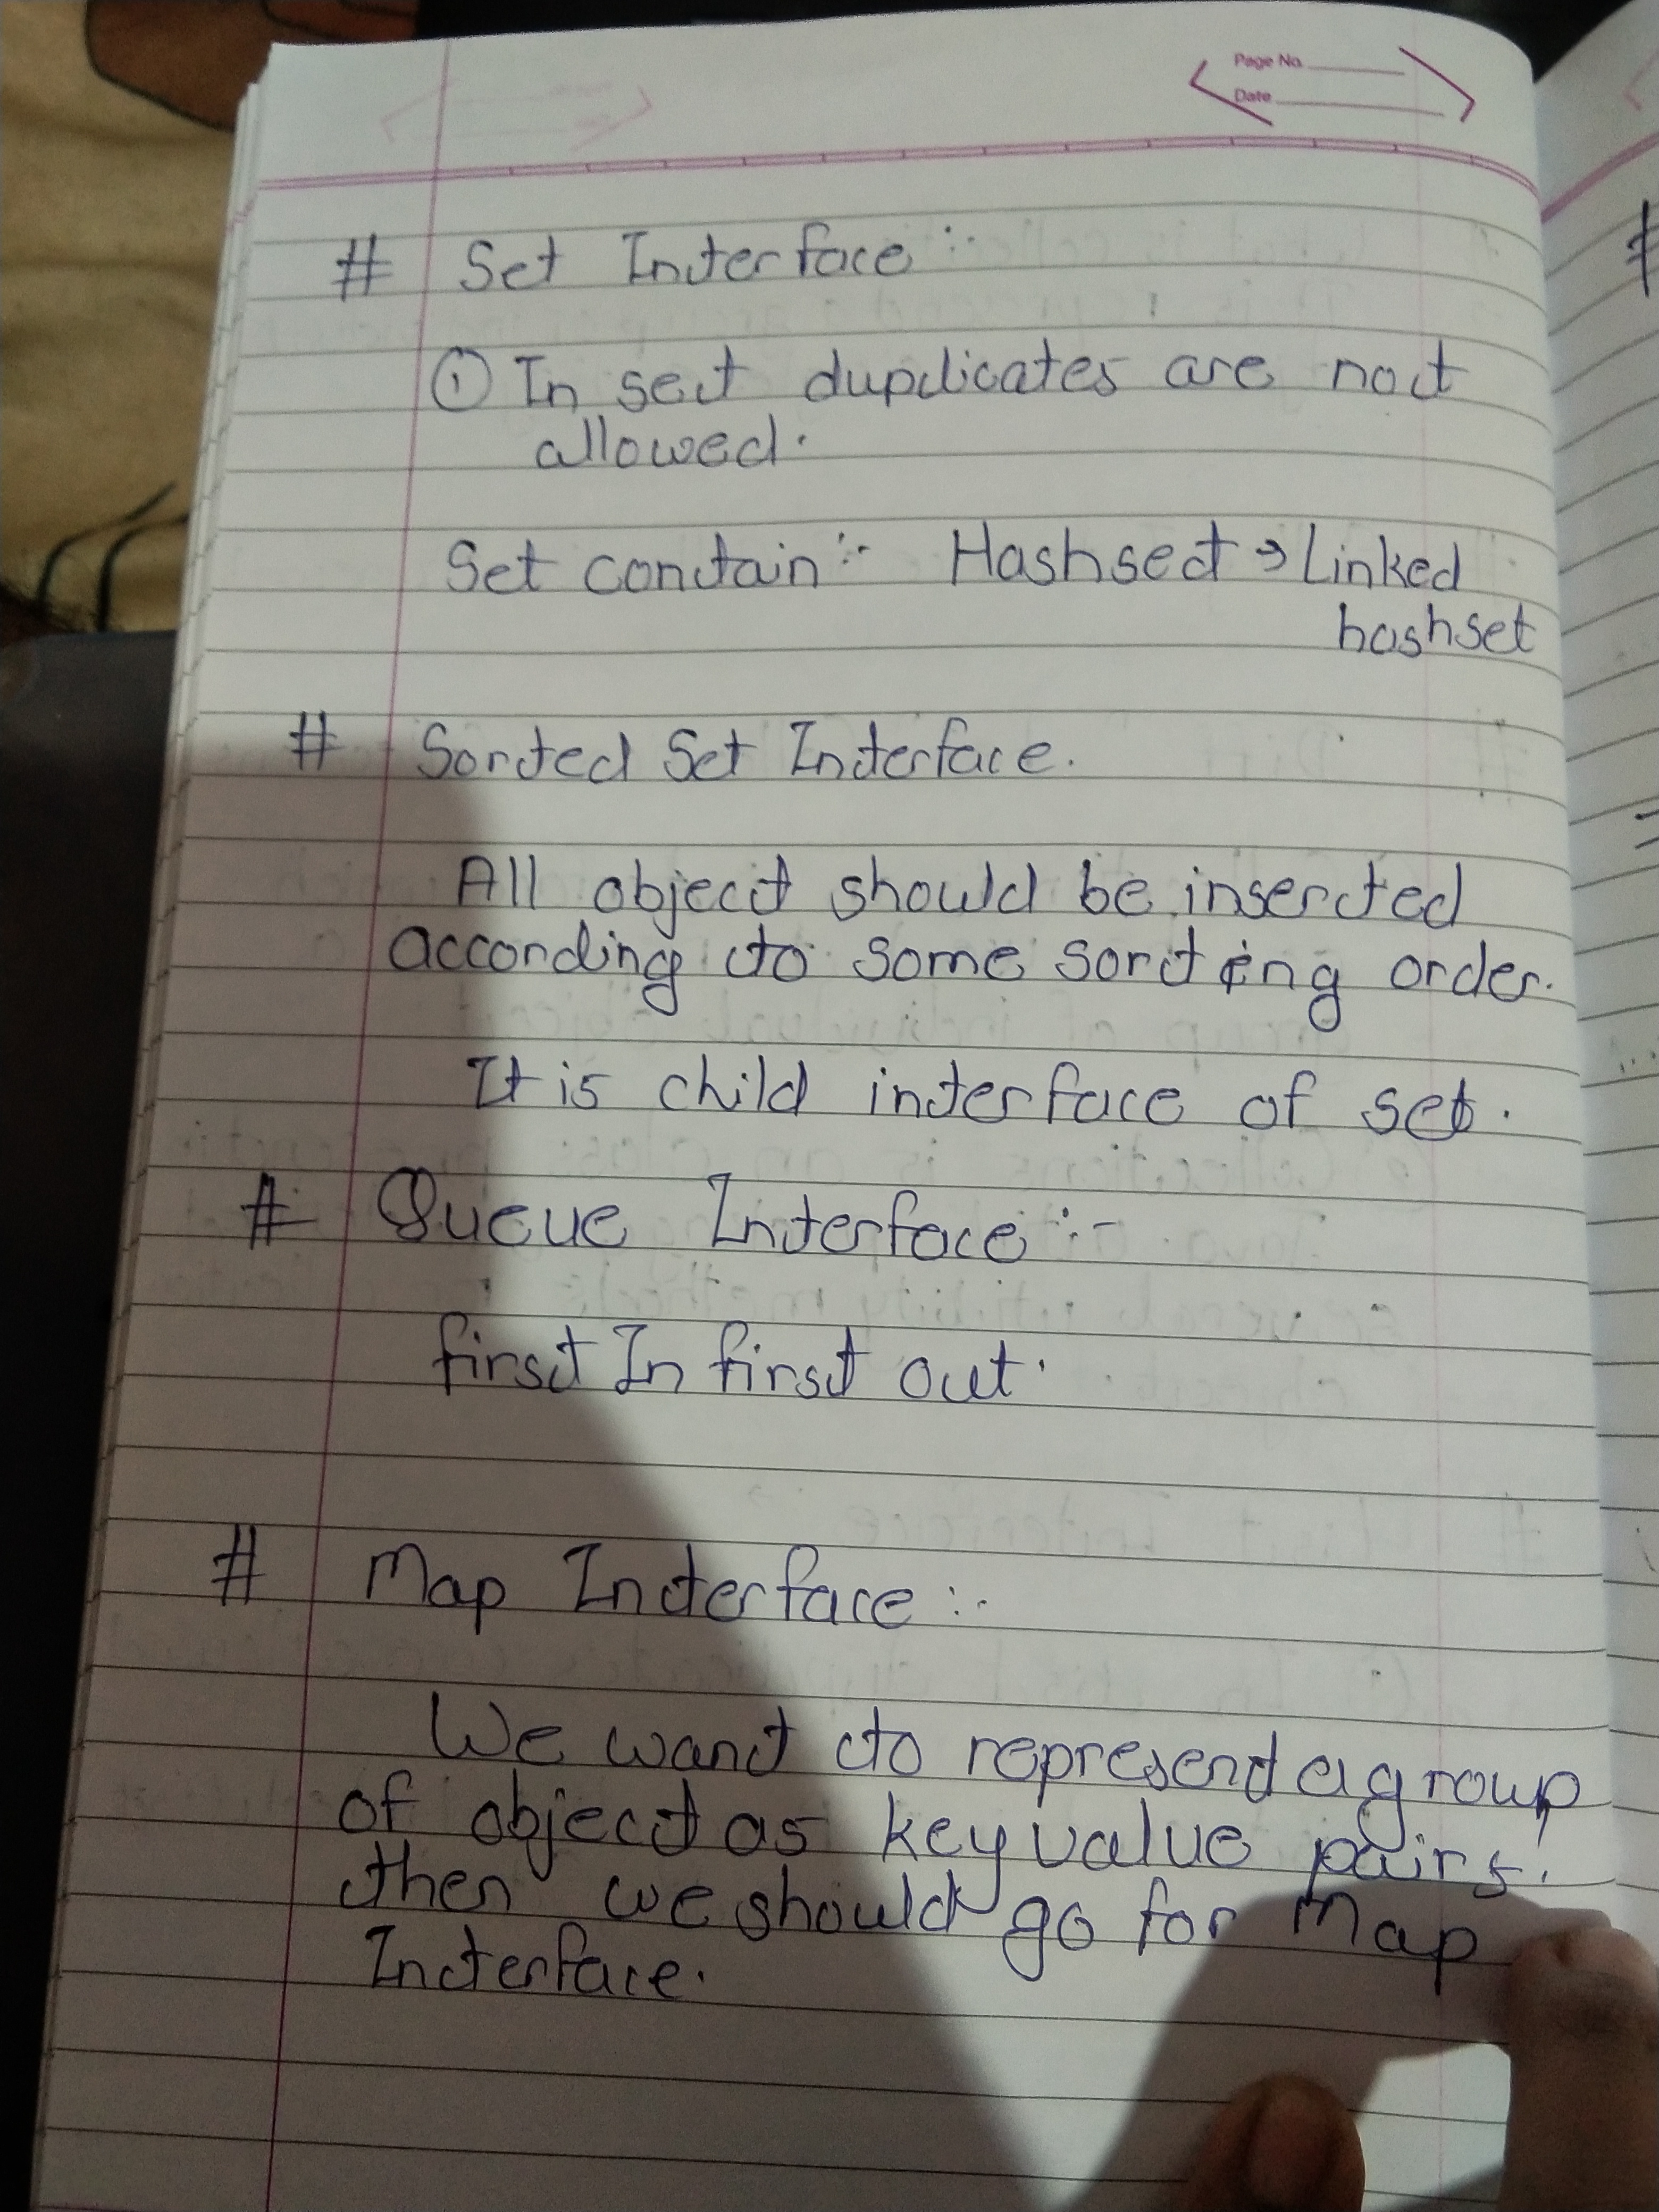 Page No.
Date
# Set Interface :-
① In set duplicates are not
allowed.
Set contain :- Hashset → Linked
hashset
# Sorted Set Interface.
All object should be inserted
according to some sorting order.
It is child interface of set.
# Queue Interface :-
first In first out.
# Map Interface :-
We want to represent a group
of object as key value pairs.
then we should go for Map
Interface.